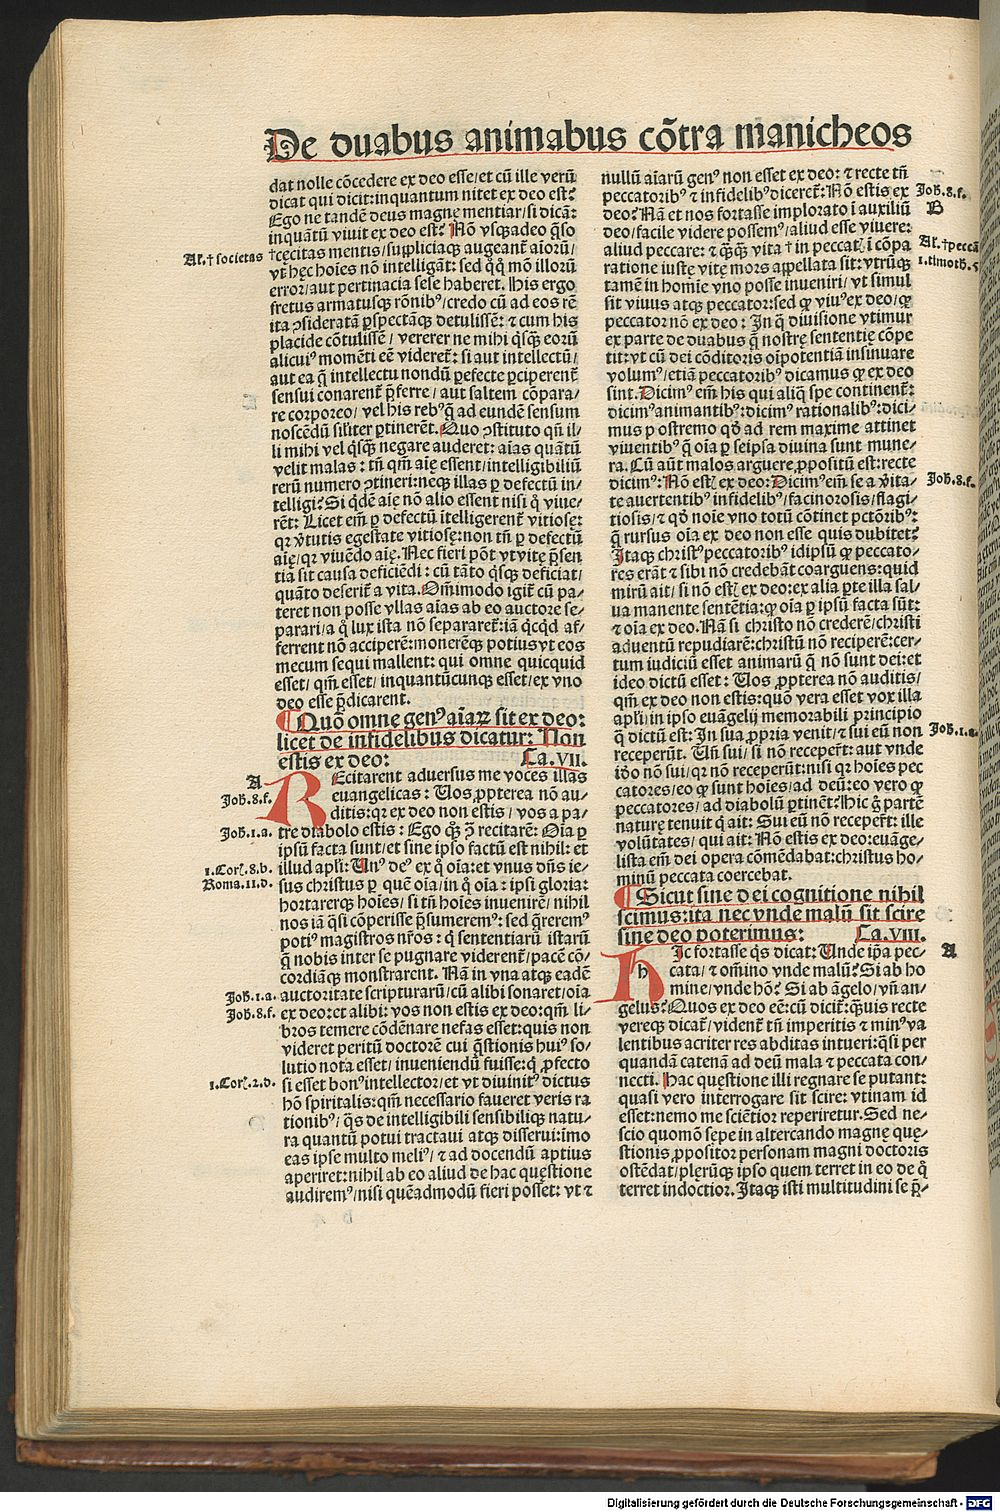 De duabus animabus cõtra manicheos
dat nolle cõcedere ex deo esse/et cũ ille verũ
dicat qui dicit:inquantum nitet ex deo est?
Ego ne tandẽ deus magne mentiar/si dicã:
inquãtũ viuit ex deo est? Nõ vsqꝫadeo q̃so
Al'.† societas †cęcitas mentis/suppliciaqꝫ augeant̃ aiorũ/
vt hęc hoĩes nõ intelligãt: sed q̃q̃ mõ illorũ
error/aut pertinacia sese haberet. His ergo
fretus armatusqꝫ rõnibꝰ/credo cũ ad eos rẽ
ita ꝯsideratã ꝑspectãqꝫ detulissẽ: ⁊ cum his
placide cõtulissẽ/ vererer ne mihi q̃sqꝫ eorũ
alicuiꝰ momẽti eẽ videret̃: si aut intellectũ/
aut ea q̃ intellectu nondũ ꝑfecte ꝑciperent̃
sensui conarent̃ p̃ferre/aut saltem cõpara/
re corporeo/vel his rebꝰ q̃ ad eundẽ sensum
noscẽdũ sil'iter ꝑtinerẽt. Quo ꝯstituto qñ il/
li mihi vel q̃sqꝫ negare auderet: aĩas quãtũ
velit malas: tñ qm̃ aĩę essent/intelligibiliũ
rerũ numero ꝯtineri:neqꝫ illas ꝑ defectũ in/
telligi? Si q̃dẽ aĩę nõ alio essent nisi q̃ viue/
rẽt: Licet em̃ ꝑ defectũ ĩtelligerent̃ vitiosę:
qꝛ v̾tutis egestate vitiosę:non tñ ꝑ defectũ
aĩę/qꝛ viuẽdo aĩę. Nec fieri põt vt vitę p̃sen
tia sit causa deficiẽdi: cũ tãto q̃sqꝫ deficiat/
quãto deserit̃ a vita. Om̃imodo igit̃ cũ pa/
teret non posse vllas aĩas ab eo auctore se/
parari/a q̃ lux ista nõ separaret̃:iã q̃cq̃d af/
ferrent nõ acciperẽ:monerẽqꝫ potius vt eos
mecum sequi mallent: qui omne quicquid
esset/qm̃ esset/inquantũcunqꝫ esset/ex vno
deo esse p̃dicarent.
¶ Quõ omne genꝰ aĩaꝝ sit ex deo:
licet de infidelibus dicatur: Non
estis ex deo: Ca.VII.
A
Joh.8.f.
REcitarent aduersus me voces illas
euangelicas: Uos ꝓpterea nõ au/
ditis:qꝛ ex deo non estis/ vos a pa/
Joh.1.a. tre diabolo estis: Ego q̃ꝫ ꝯ̃ recitarẽ: Oĩa ꝑ
ipsũ facta sunt/et sine ipso factũ est nihil: et
1.Cor̃.8.b. illud apl̃i: Unꝰ deꝰ ex q̃ oĩa:et vnus dñs ie/
Roma.11.d. sus christus ꝑ quẽ oĩa/in q̃ oĩa: ipsi gloria:
hortarerqꝫ hoĩes/si tñ hoĩes inuenirẽ/nihil
nos iã q̃si cõperisse p̃sumeremꝰ: sed q̃reremꝰ
potiꝰ magistros nr̃os: q̃ sententiarũ istarũ
q̃ nobis inter se pugnare viderent̃/pacẽ cõ/
cordiãqꝫ monstrarent. Nã in vna atqꝫ eadẽ
Joh.1.a. auctoritate scripturarũ/cũ alibi sonaret/oĩa
Joh.8.f. ex deo:et alibi: vos non estis ex deo:qm̃ li/
bros temere cõdẽnare nefas esset:quis non
videret peritũ doctorẽ cui q̃stionis huiꝰ so/
lutio nota esset/inueniendũ fuisse:q̃ ꝓfecto
1.Cor̃.2.d. si esset bonꝰ intellector/et vt diuinitꝰ dictus
hõ spiritalis:qm̃ necessario faueret veris ra
tionibꝰ/q̃s de intelligibili sensibiliqꝫ natu/
ra quantũ potui tractaui atqꝫ disserui:imo
eas ipse multo meliꝰ/⁊ ad docendũ aptius
aperiret:nihil ab eo aliud de hac quęstione
audiremꝰ/nisi quẽadmodũ fieri posset: vt ⁊
nullũ aĩarũ genꝰ non esset ex deo: ⁊ recte tñ
peccatoribꝰ ⁊ infidelibꝰ diceret̃: Nõ estis ex Joh.8.f.
deo? Nã et nos fortasse implorato ĩ auxiliũ B
deo/facile videre possemꝰ/aliud esse viuere:
aliud peccare: ⁊ q̃q̃ꝫ vita † in peccat̃ ĩ cõpa Al'.†peccã
ratione iustę vitę mors appellata sit: vtrũqꝫ 1.timoth.5
tamẽ in homĩe vno posse inueniri/ vt simul
sit viuus atqꝫ peccator:sed ꝙ viuꝰ ex deo/ꝙ
peccator nõ ex deo: In q̃ diuisione vtimur
ex parte de duabus q̃ nostrę sententię cõpe
tit:vt cũ dei cõditoris oĩpotentiã insinuare
volumꝰ/etiã peccatoribꝰ dicamus ꝙ ex deo
sint. Dicimꝰ em̃ his qui aliq̃ spe continent̃:
dicimꝰ animantibꝰ:dicimꝰ rationalibꝰ:dici/
mus postremo qđ ad rem maxime attinet
viuentibꝰ q̃ oĩa ꝑ seipsa diuina sunt mune/
ra. Cũ aũt malos arguere ꝓpositũ est:recte
dicimꝰ: Nõ estꝭ ex deo: Dicimꝰ em̃ se a v̾ita/ Joh.8.f.
te auertentibꝰ infidelibꝰ/facinorosis/flagi/
tiosis/⁊ qđ noĩe vno totũ cõtinet pctõribꝰ:
q̃ rursus oĩa ex deo non esse quis dubitet?
Itaqꝫ christꝰ peccatoribꝰ idipsũ ꝙ peccato/
res erãt ⁊ sibi nõ credebãt coarguens:quid
mirũ ait/si nõ estꝭ ex deo:ex alia ꝑte illa sal/
ua manente sentẽtia:ꝙ oĩa ꝑ ipsũ facta sũt:
⁊ oĩa ex deo. Nã si christo nõ crederẽ/christi
aduentũ repudiarẽ:christũ nõ reciperẽ:cer/
tum iudiciũ esset animarũ q̃ nõ sunt dei:et
ideo dictũ esset: Uos ꝓpterea nõ auditis/
qm̃ ex deo non estis:quõ vera esset vox illa
apl̃i/in ipso euãgelij memorabili principio
q̃ dictũ est: In sua ꝓpria venit/⁊ sui eũ non Joh.1.a.
receperũt. Uñ sui/ si nõ recepert̃: aut vnde
iđo nõ sui/qꝛ nõ receperũt:nisi qꝛ hoĩes pec
catores/eo ꝙ sunt hoĩes/ad deũ:eo vero ꝙ
peccatores/ad diabolũ ꝑtinẽt? Hic g̃ partẽ
naturę tenuit q̃ ait: Sui eũ nõ recepert̃: ille
volũtates/ qui ait: Nõ estis ex deo:euãge/
lista em̃ dei opera cõmẽdabat:christus ho/
minũ peccata coercebat.
¶ Sicut sine dei cognitione nihil
scimus:ita nec vnde malũ sit scire
sine deo poterimus: Ca.VIII.
HIc fortasse q̃s dicat: Unde ip̃a pec/ A
h
cata/⁊ om̃ino vnde malũ? Si ab ho
mine/vnde hõ? Si ab ãgelo/vñ an/
gelus? Quos ex deo eẽ:cũ dicit̃:q̃uis recte
vereqꝫ dicat̃/vident̃ tñ imperitis ⁊ minꝰ va
lentibus acriter res abditas intueri:q̃si per
quandã catenã ad deũ mala ⁊ peccata con/
necti. Hac quęstione illi regnare se putant:
quasi vero interrogare sit scire: vtinam id
esset:nemo me sciẽtior reperiretur. Sed ne/
scio quomõ sępe in altercando magnę quę/
stionis ꝓpositor personam magni doctoris
ostẽdat/plerũqꝫ ipso quem terret in eo de q̃
terret indoctior. Itaqꝫ isti multitudini se p̃/
Digitalisierung gefördert durch die Deutsche Forschungsgemeinschaft - DFG